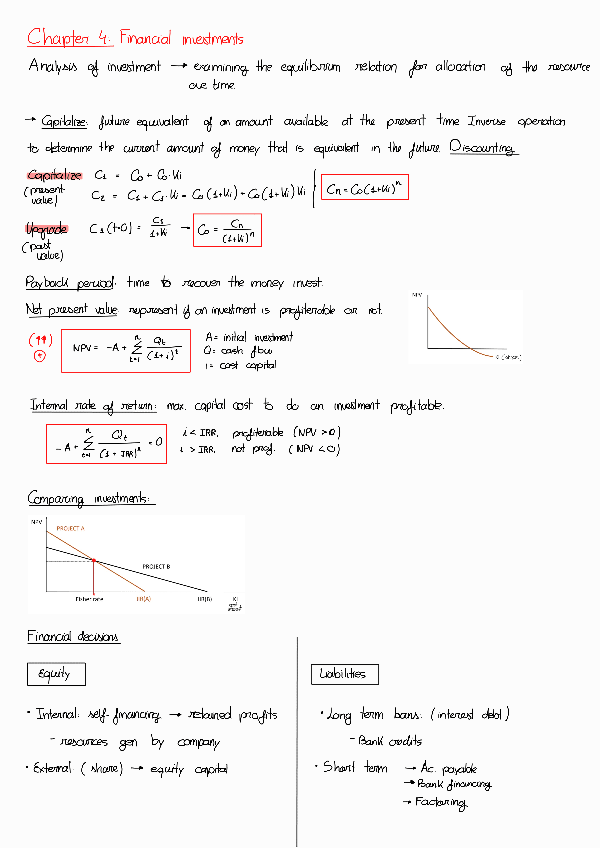 Chapter 4. Financial investments
Analysis of investment → examining the equilibrium relation for allocation of the resource
ove time.
→ Capitalize: future equivalent of an amount available at the present time Inverse operation
to determine the current amount of money that is equivalent in the future Discounting
Capitalize C₁ = C₀ + C₀·Ki
(present value) C₂ = C₁ + C₁·Ki = C₀(1+Ki) + C₀(1+Ki)Ki Cn = C₀(1+Ki)ⁿ
Upgrade C₁(t=0) = C₁/(1+Ki) → C₀ = Cn/(1+Ki)ⁿ
(past value)
Payback period: time to recover the money invest.
Net present value represent if an investment is profiterable or not.
NPV
(↑↑) NPV = -A + Σ(t=1, n) Qt/(1+i)^t A = initial investment
⊕ Q = cash flow
i = cost capital
Internal rate of return: max. capital cost to do an investment profitable.
-A + Σ(t=1, n) Qt/(1+IRR)ⁿ = 0 i < IRR, profiterable (NPV > 0)
i > IRR, not prof. (NPV < 0)
Comparing investments:
NPV
PROJECT A
PROJECT B
Fisher rate IRR(A) IRR(B) Ki
Financial decisions
Equity
Liabilities
• Internal: self-financing → retained profits
- resources gen by company
• External (share) → equity capital
• Long term loans: (interest debt)
- Bank credits
• Short term → Ac. payable
→ Bank financing
→ Factoring